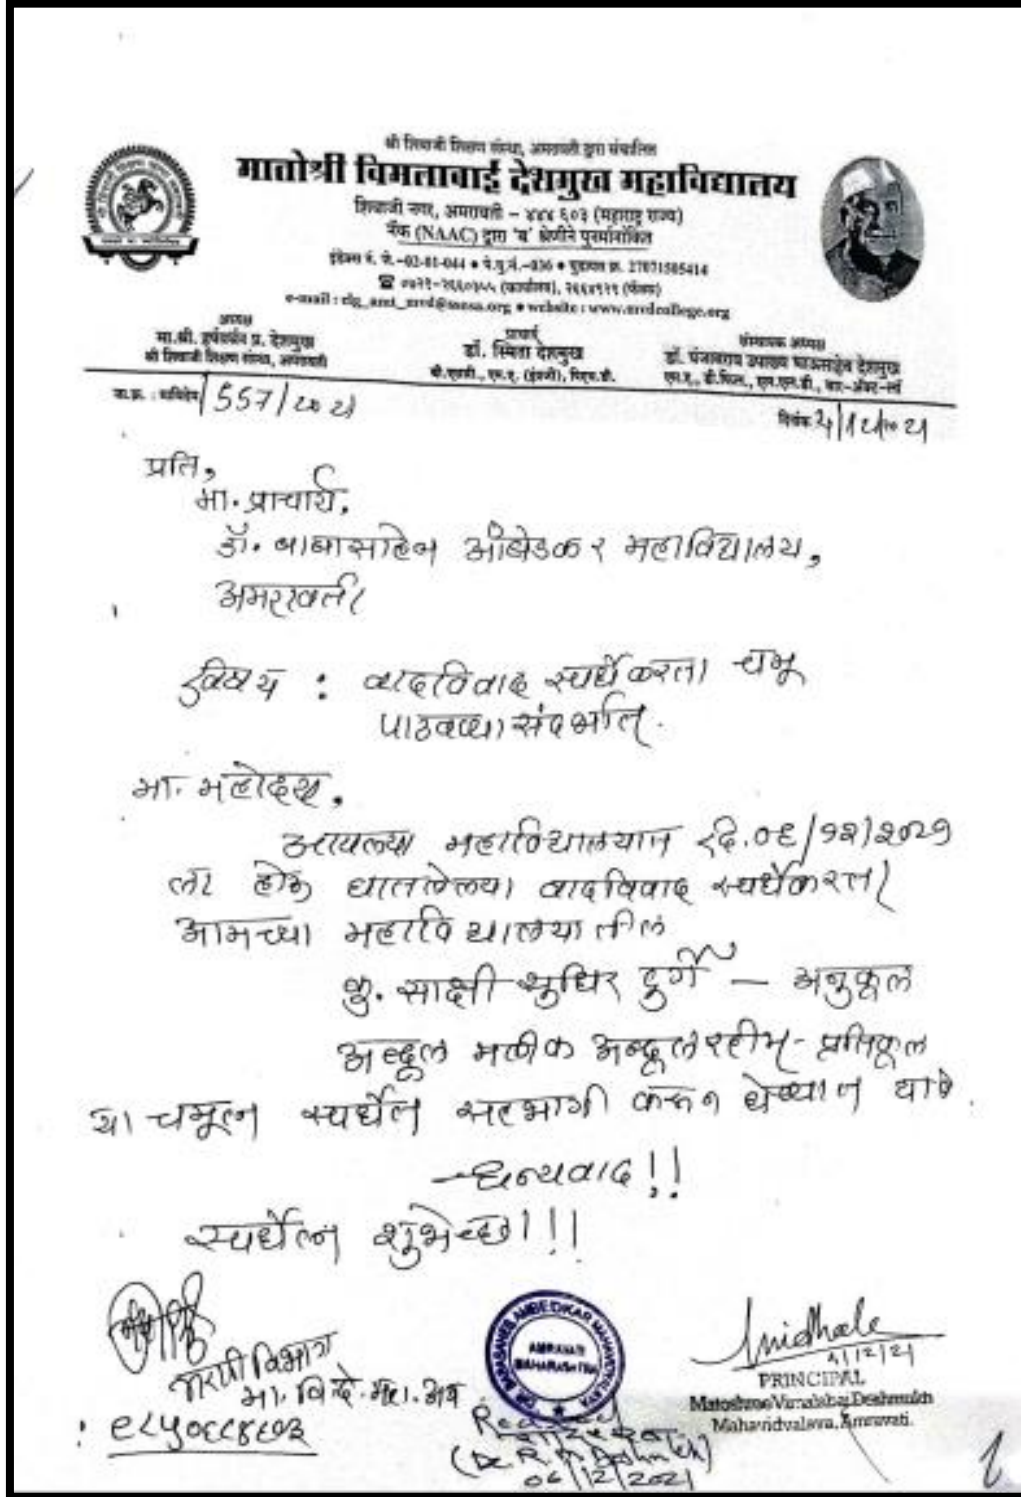 श्री शिवाजी शिक्षण संस्था, अमरावती द्वारा संचालित
मातोश्री विमलाबाई देशमुख महाविद्यालय
शिवाजी नगर, अमरावती – ४४४ ६०३ (महाराष्ट्र राज्य)
नॅक (NAAC) द्वारा 'ब' श्रेणीने पुनर्मानांकित
इंडेक्स क्रं. जे.-02-01-044 • पे.यु.नं.-036 • युडायस क्र. 27071505414
(कार्यालय), (फॅक्स)
e-mail : clg_amt_mvd@sssa.org • website : www.mvdcollege.org
अध्यक्ष
मा.श्री. हर्षवर्धन प्र. देशमुख
श्री शिवाजी शिक्षण संस्था, अमरावती
प्राचार्य
डॉ. स्मिता देशमुख
बी.एससी., एम.ए. (इंग्रजी), पीएच.डी.
संस्थापक अध्यक्ष
डॉ. पंजाबराव उपाख्य भाऊसाहेब देशमुख
एम.ए., डी.फिल., एल.एल.बी., बार-अॅट-लॉ
जा.क्र. : मविदेम/557/2021
दिनांक 4/12/2021
प्रति,
मा. प्राचार्य,
डॉ. बाबासाहेब आंबेडकर महाविद्यालय,
अमरावती
विषय : वादविवाद स्पर्धेकरता चमू
पाठवण्यासंदर्भात.
मा. महोदय,
आपल्या महाविद्यालयात दि. ०६/१२/२०२१
ला होऊ घातलेल्या वादविवाद स्पर्धेकरता
आमच्या महाविद्यालयातील
कु. साक्षी सुधिर दुर्गे – अनुकूल
अब्दूल मलीक अब्दूल रहीम - प्रतिकूल
या चमूला स्पर्धेत सहभागी करून घेण्यात यावे.
– धन्यवाद!!
स्पर्धेला शुभेच्छा!!!
मराठी विभाग
मा. वि. दे. महा. अम
DR. BABASAHEB AMBEDKAR MAHAVIDYALAYA
AMRAVATI
MAHARASHTRA
4/12/21
PRINCIPAL
Matoshree Vimalabai Deshmukh
Mahavidyalaya, Amravati.
06/12/2021